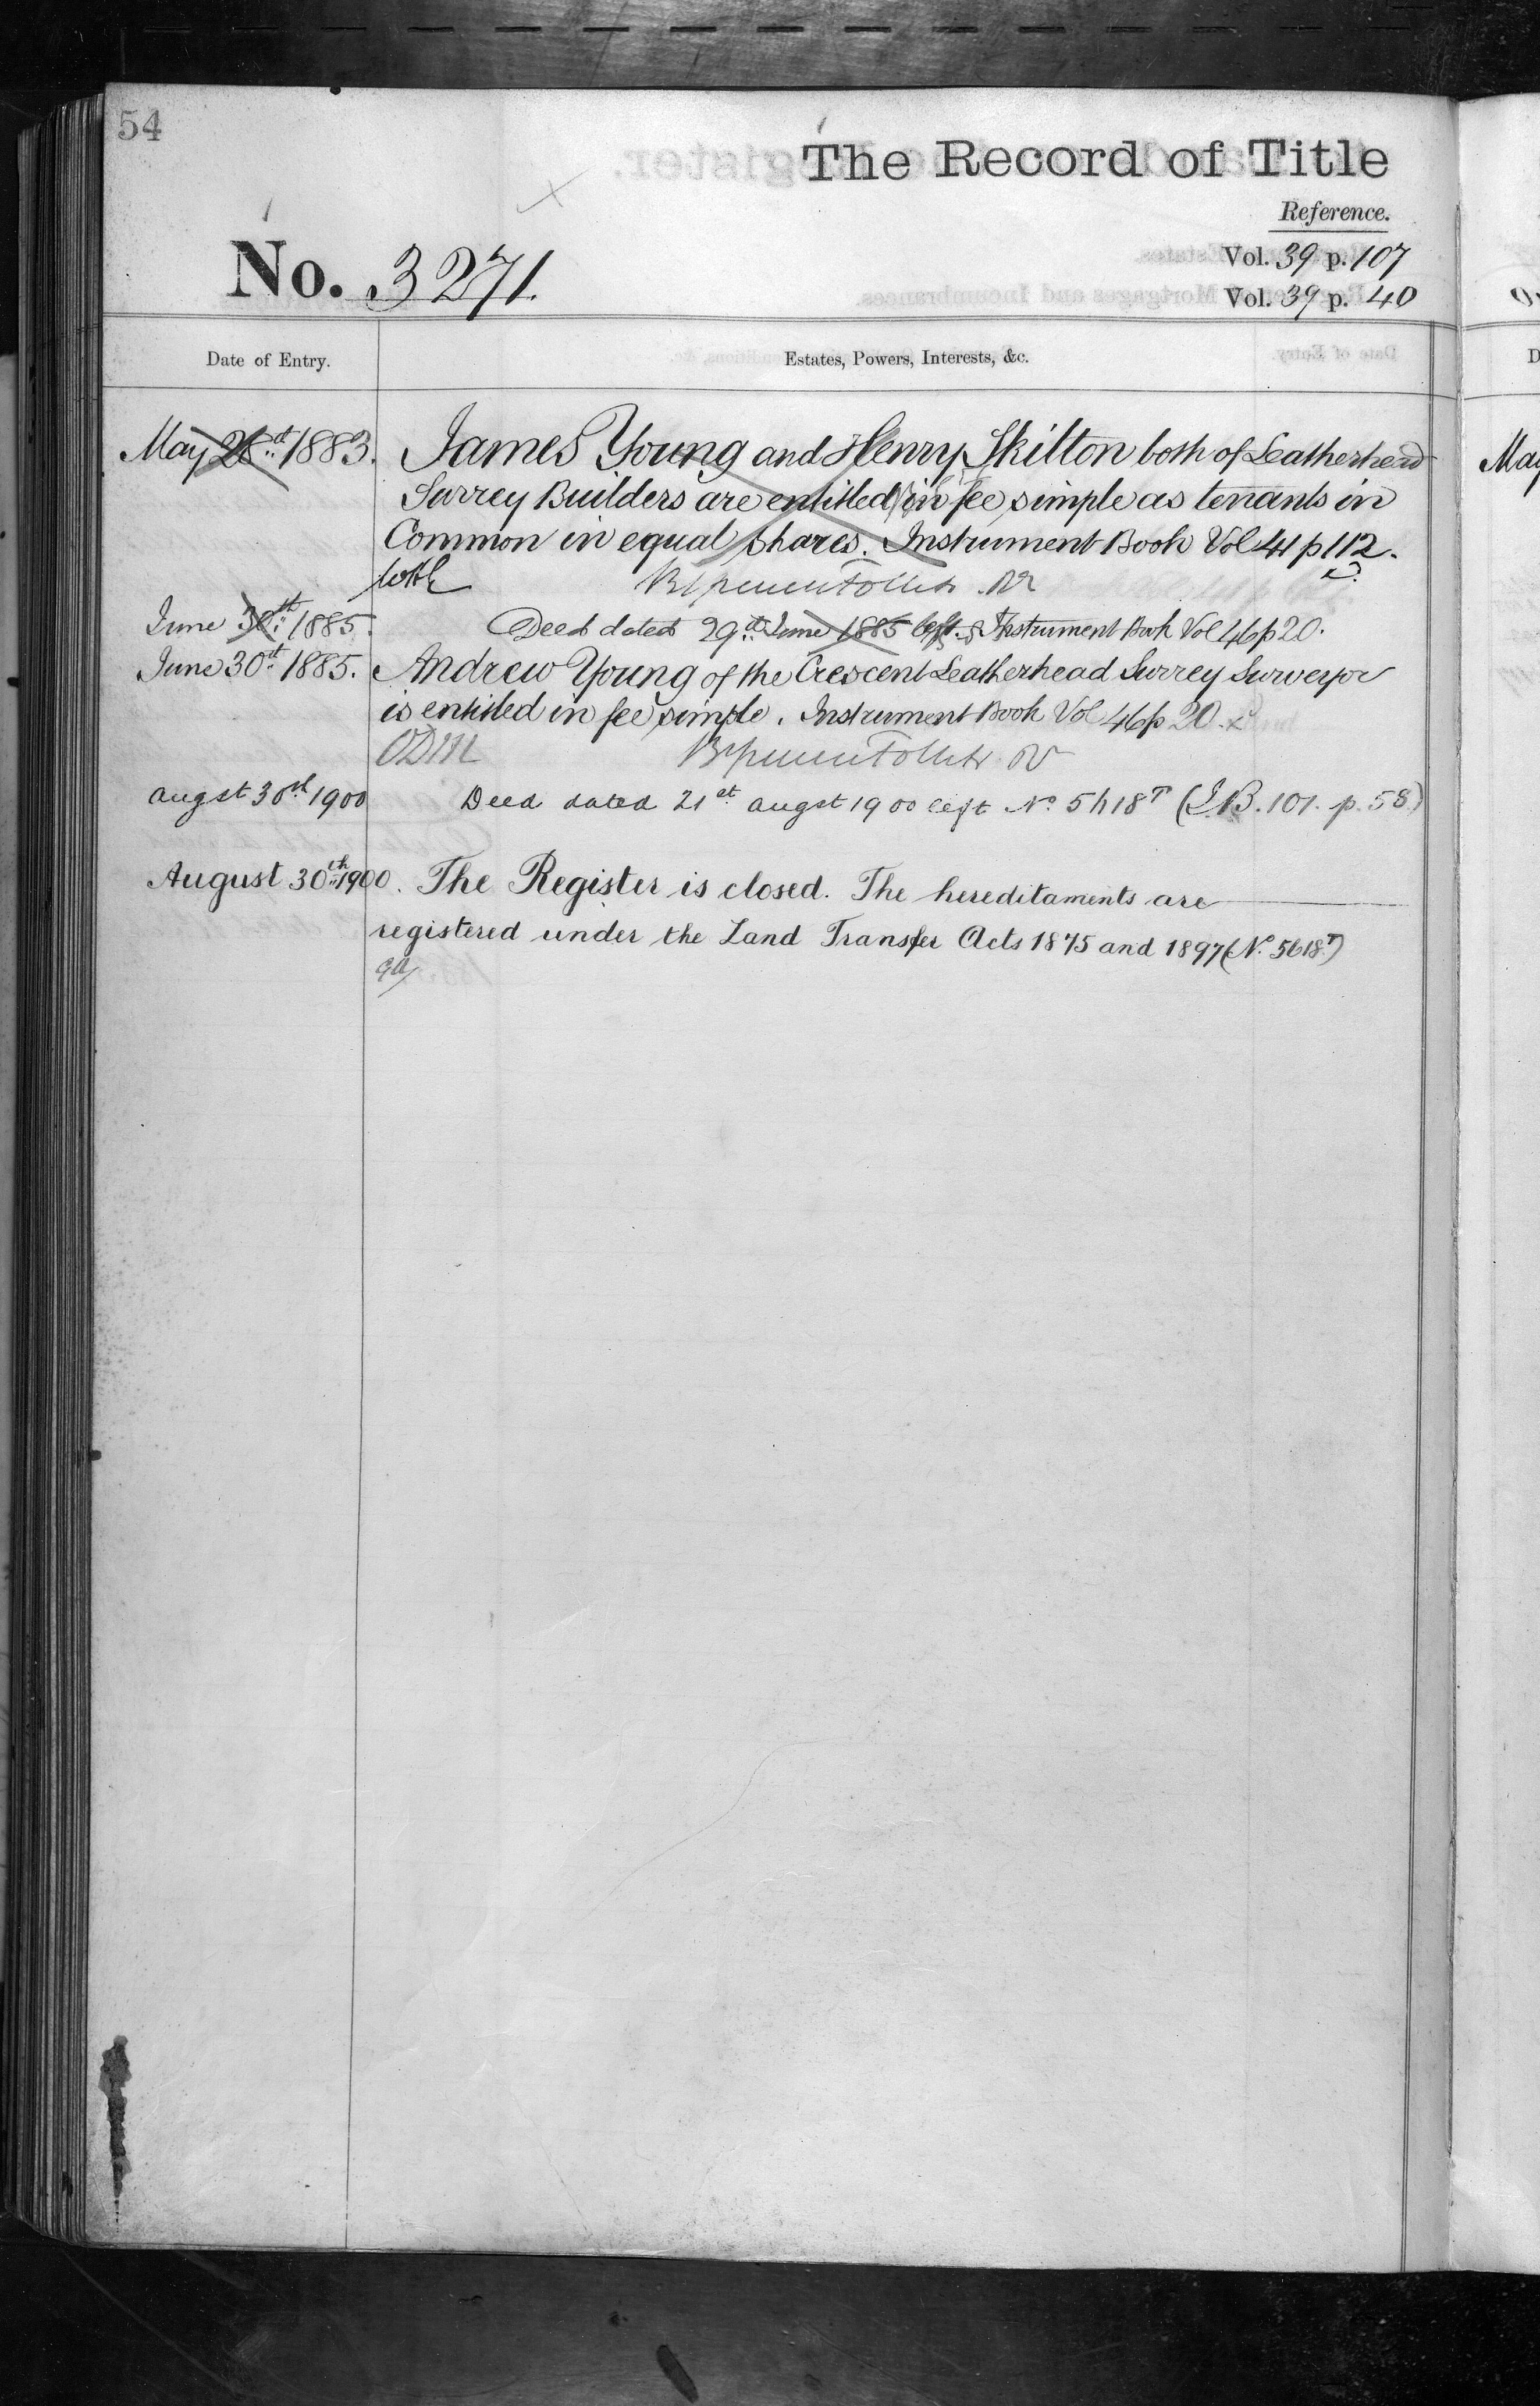 54
The Record of Title
Reference.
No. 3271.
Vol. 39 p. 107
Vol. 39 p. 40
Date of Entry.
Estates, Powers, Interests, &c.
May 28th 1883. James Young and Henry Skilton both of Leatherhead
Surrey Builders are entitled in fee simple as tenants in
Common in equal shares. Instrument Book Vol 41 p 112.
June 30th 1885. Deed dated 29th June 1885 left. Instrument Book Vol 46 p 20.
June 30th 1885. Andrew Young of the Crescent Leatherhead Surrey Surveyor
is entitled in fee simple. Instrument Book Vol 46 p 20.
ODM
Augst 30th 1900 Deed dated 21st Augst 1900 left No. 5618T (I.B. 101. p. 58)
August 30th 1900. The Register is closed. The hereditaments are
registered under the Land Transfer Acts 1875 and 1897 (No. 5618T)
May